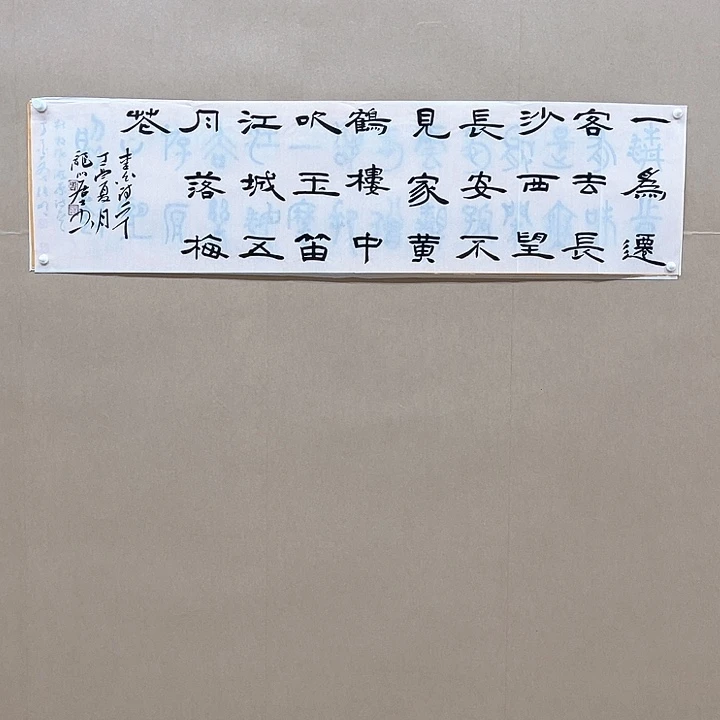 一為遷
客去長
沙西望
長安不
見家黃
鶴樓中
吹玉笛
江城五
月落梅
花
李白詩
丁酉夏月